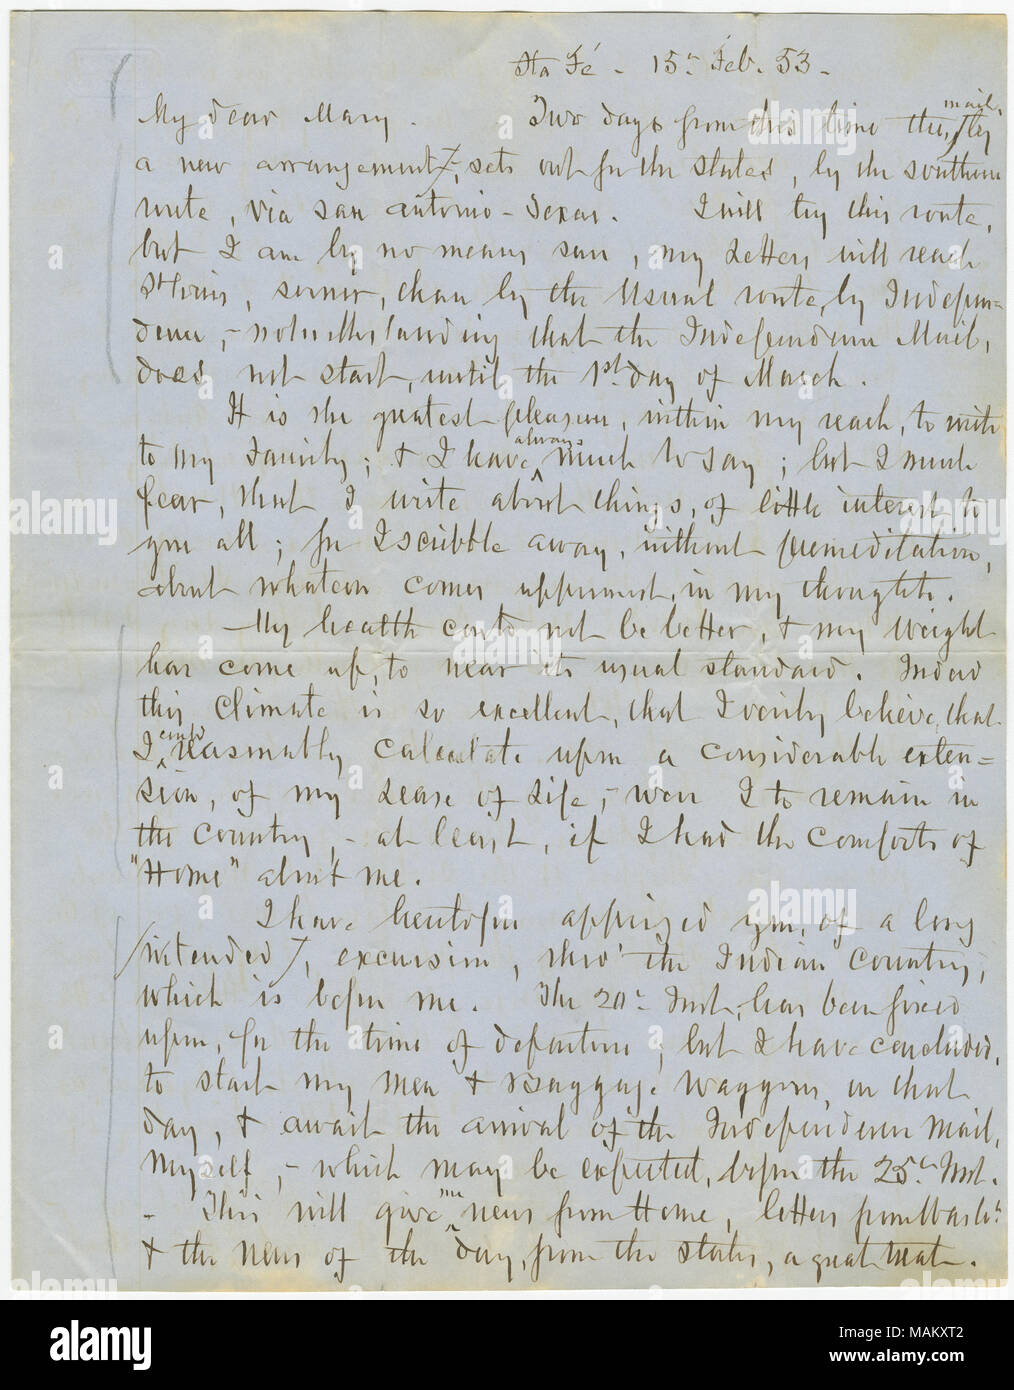 Sta Fé - 15th Feb. 53 -
My dear Mary. Two days from this time the mail, (by
a new arrangement) - sets out for the States, by the southern
route, via San Antonio - Texas. I will try this route,
but I am by no means sure, my Letters will reach
St Louis, sooner, than by the Usual route, by Indepen=
dence, - notwithstanding that the Independence Mail,
does not start, until the 1st day of March.
It is the greatest pleasure, within my reach, to write
to my Family; & I have always much to say; but I much
fear, that I write about things, of little interest to
you all; for I scribble away, without premeditation,
about whatever comes uppermost, in my thoughts.
My health can't not be better, & my weight
has come up, to near its usual standard. Indeed
this Climate is so excellent, that I verily believe, that
I could reasonably calculate upon a considerable exten=
sion, of my Lease of Life, - were I to remain in
the country, - at least, if I had the comforts of
"Home" about me.
I have heretofore apprized you, of a long
(intended), excursion, thro' the Indian Country,
which is before me. The 20th Inst, has been fixed
upon, for the time of departure, but I have concluded,
to start my men & Baggage waggons, on that
day, & await the arrival of the Independence Mail,
Myself, - which may be expected, before the 25th Inst.
- This will give me news from Home, letters from Washn
& the News of the day, from the States, a great treat.
alamy
Image ID: MAKXT2
www.alamy.com